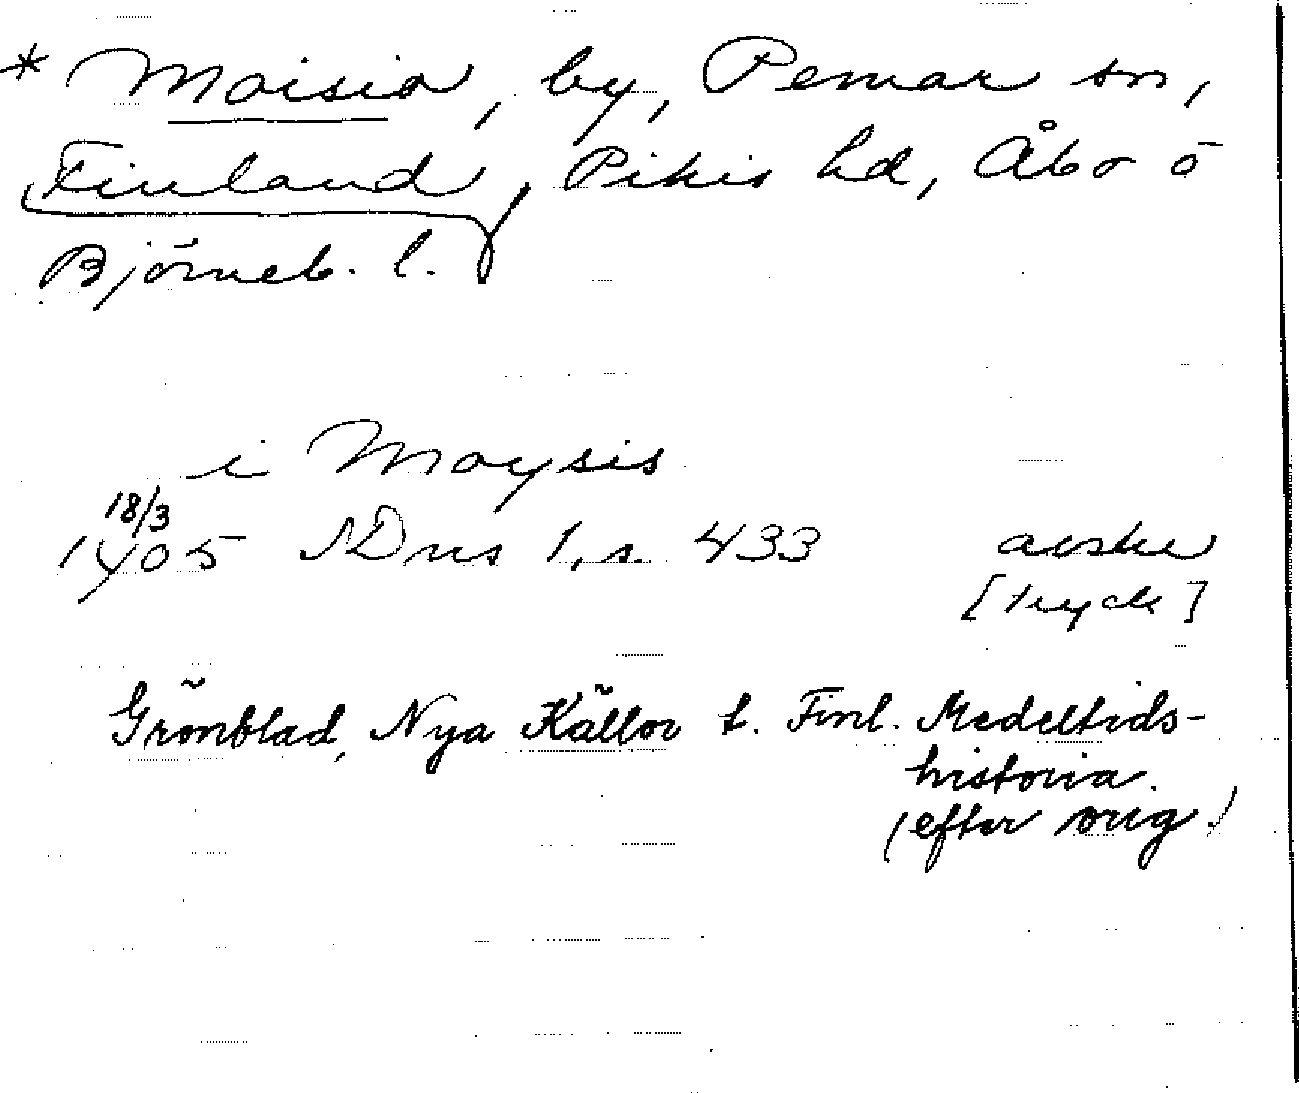 * Moisio, by, Pemar sn,
Finland, Pikis hd, Åbo o
Björneb. l.
i Moysis
18/3
1405 SDns 1, s. 433 avskr
[tryck]
Grönblad, Nya Källor t. Finl. Medeltids-
historia.
(efter orig.)